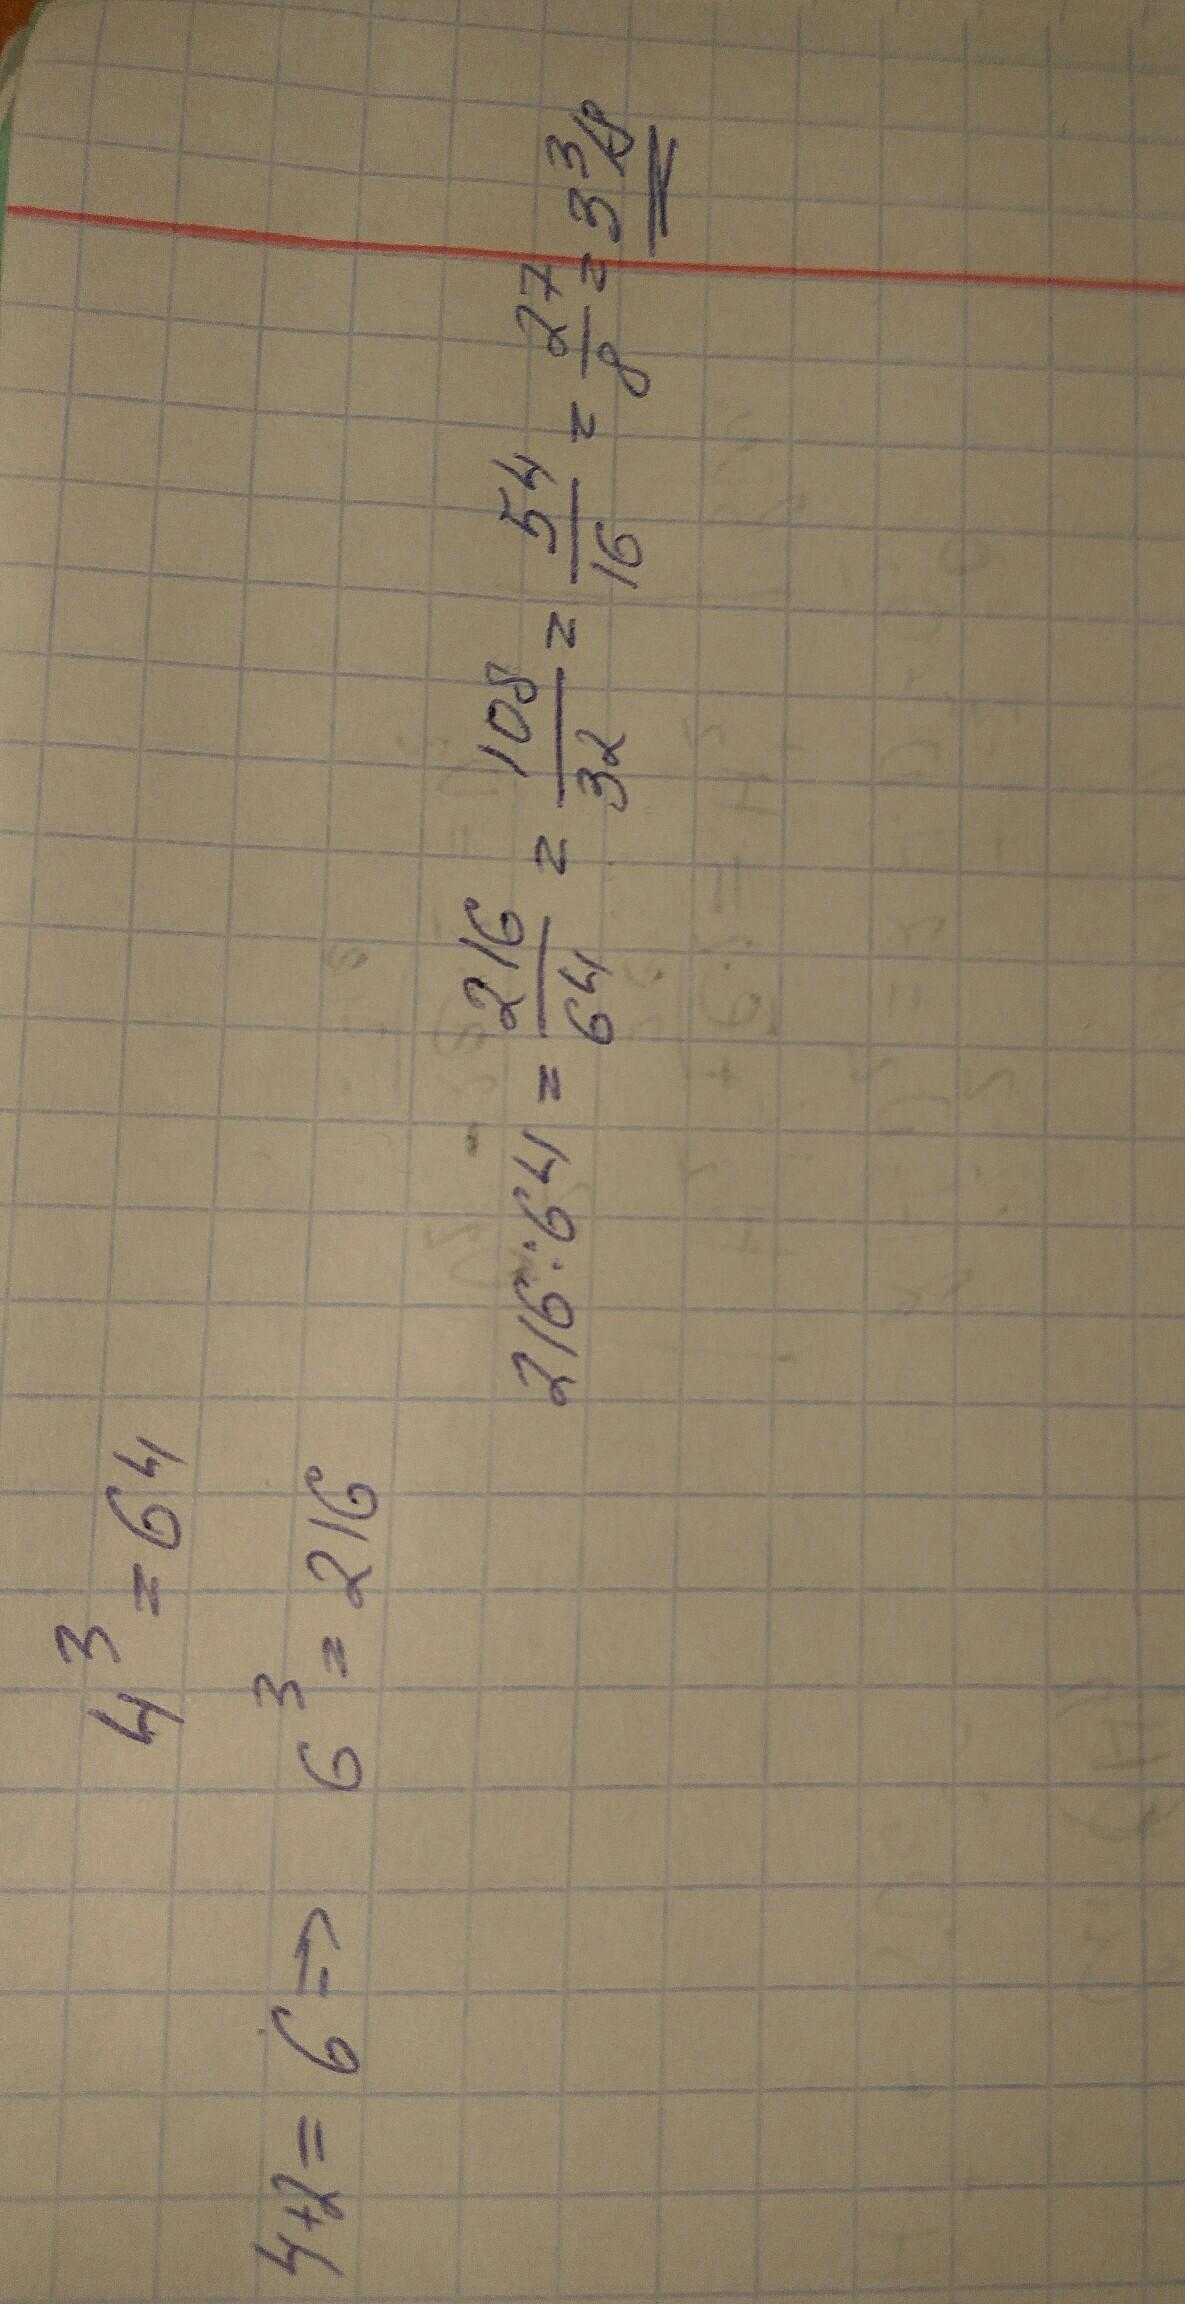 4³ = 64
4+2 = 6 ⇒ 6³ = 216
216 : 64 = 216/64 = 108/32 = 54/16 = 27/8 = 3 3/8